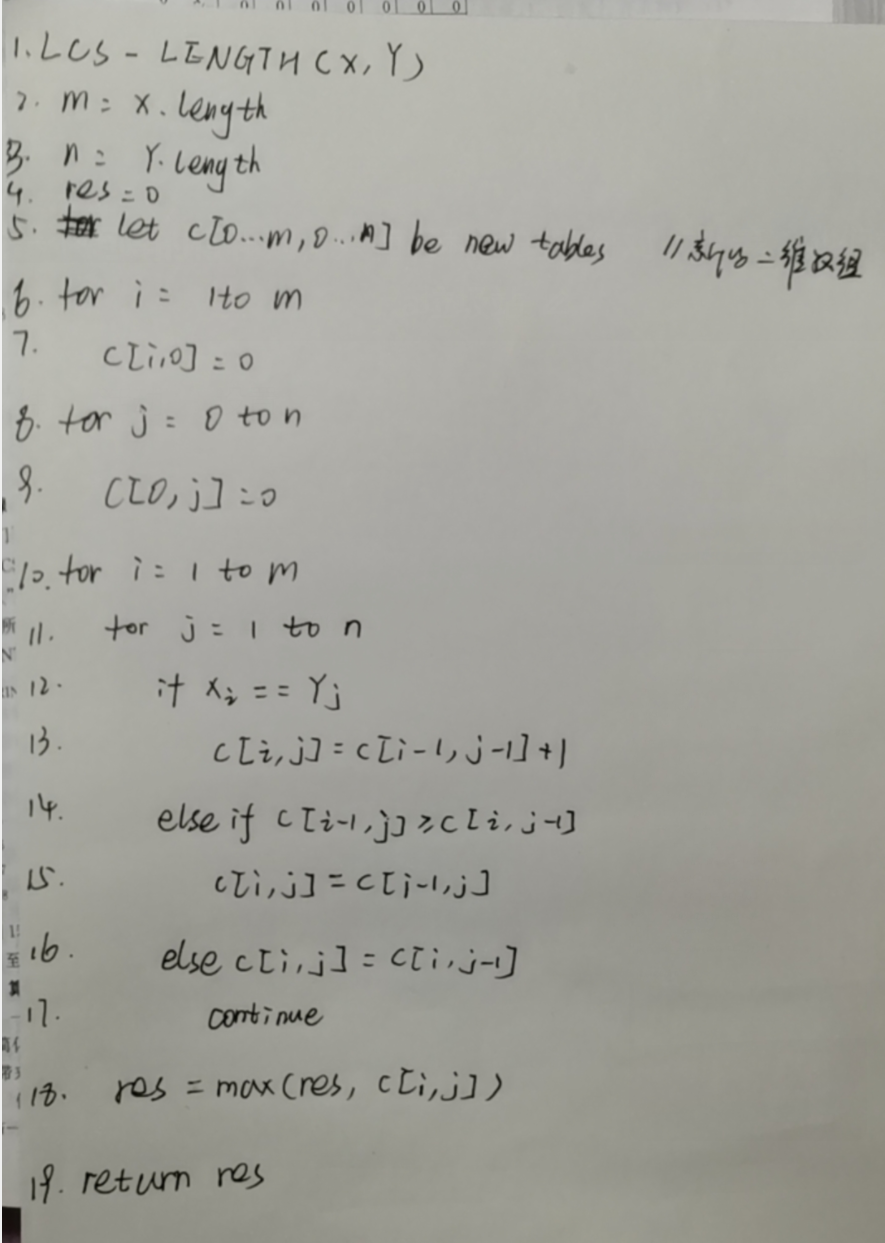 0 0 0 0 0 0 0
1. LCS - LENGTH (X, Y)
2. m = X. length
3. n = Y. length
4. res = 0
5. let c[0...m, 0...n] be new tables // 新的二维数组
6. for i = 1 to m
7. c[i,0] = 0
8. for j = 0 to n
9. C[0, j] = 0
10. for i = 1 to m
11. for j = 1 to n
12. if Xi == Yj
13. c[i, j] = c[i-1, j-1] + 1
14. else if c[i-1, j] ≥ c[i, j-1]
15. c[i, j] = c[j-1, j]
16. else c[i, j] = c[i, j-1]
17. continue
18. res = max(res, c[i, j])
19. return res